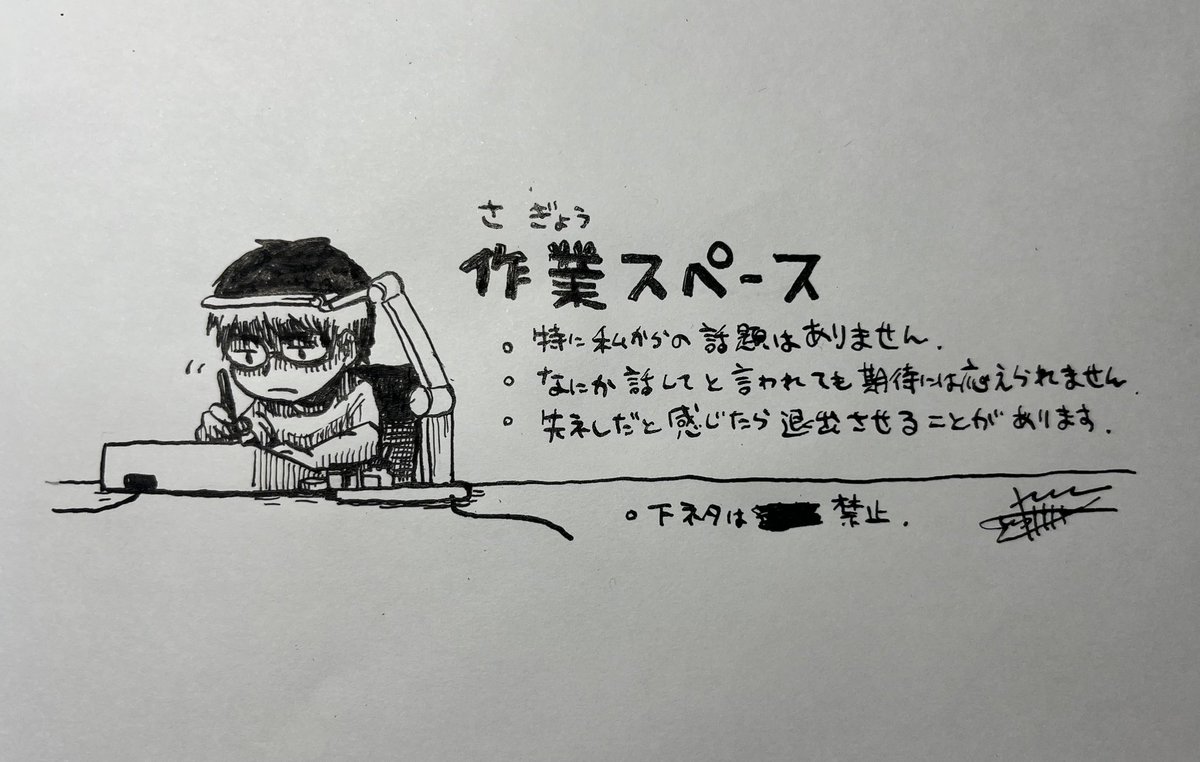 さぎょう
作業スペース
。特に私からの話題はありません.
。なにか話してと言われても期待には応えられません.
。失礼だと感じたら退出させることがあります.
。下ネタは 禁止.